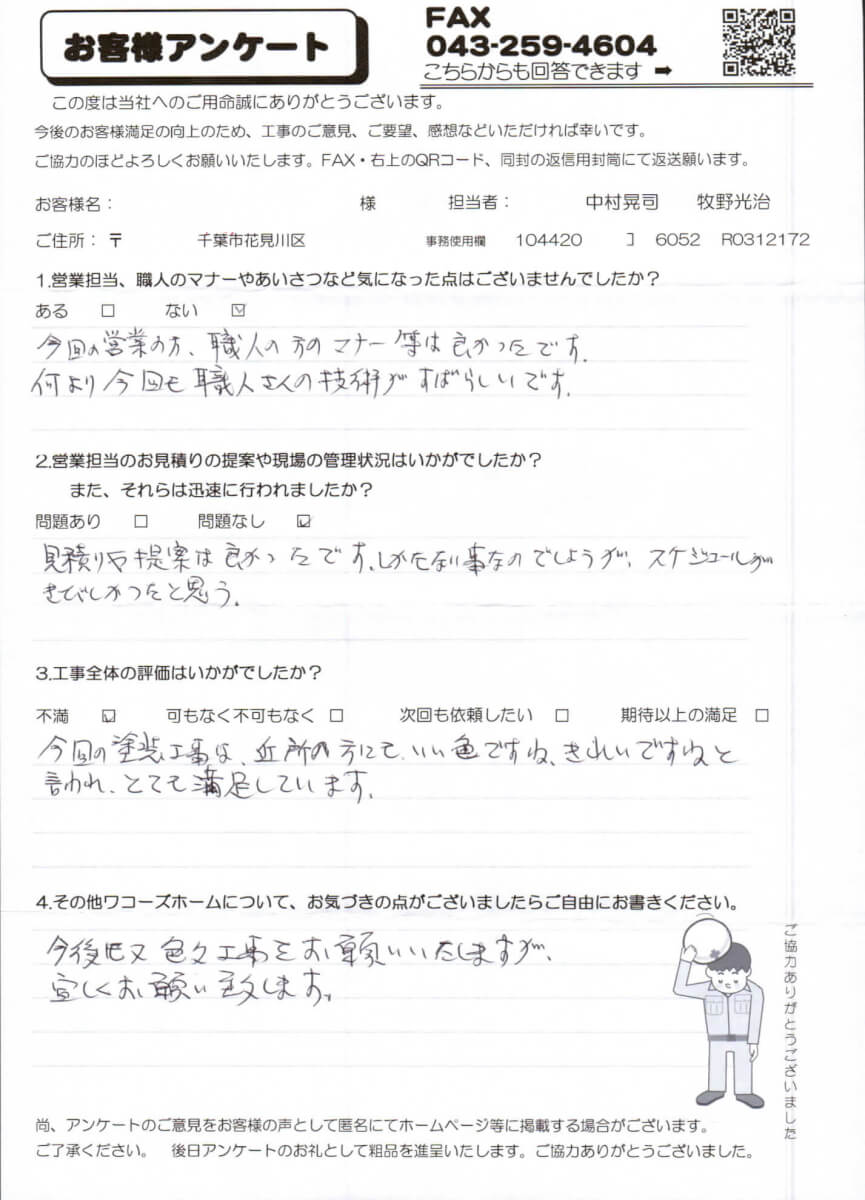 お客様アンケート
FAX
043-259-4604
こちらからも回答できます ➡
この度は当社へのご用命誠にありがとうございます。
今後のお客様満足の向上のため、工事のご意見、ご要望、感想などいただければ幸いです。
ご協力のほどよろしくお願いいたします。FAX・右上のQRコード、同封の返信用封筒にて返送願います。
お客様名： 様 担当者： 中村晃司 牧野光治
ご住所：〒 千葉市花見川区 事務使用欄 104420 コ 6052 R0312172
1.営業担当、職人のマナーやあいさつなど気になった点はございませんでしたか？
ある □ ない ☑
今回の営業の方、職人の方のマナー等は良かったです。
何より今回も職人さんの技術がすばらしいです。
2.営業担当のお見積りの提案や現場の管理状況はいかがでしたか？
また、それらは迅速に行われましたか？
問題あり □ 問題なし ☑
見積りや提案は良かったです。しかたない事なのでしょうが、スケジュールが
きびしかったと思う。
3.工事全体の評価はいかがでしたか？
不満 ☑ 可もなく不可もなく □ 次回も依頼したい □ 期待以上の満足 □
今回の塗装工事は、近所の方にも、いい色ですね、きれいですねと
言われ、とても満足しています。
4.その他ワコーズホームについて、お気づきの点がございましたらご自由にお書きください。
今後も又色々工事をお願いいたしますが、
宜しくお願い致します。
ご協力ありがとうございました
尚、アンケートのご意見をお客様の声として匿名にてホームページ等に掲載する場合がございます。
ご了承ください。 後日アンケートのお礼として粗品を進呈いたします。ご協力ありがとうございました。